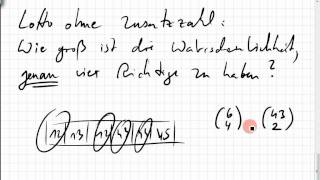 Lotto ohne Zusatzzahl:
Wie groß ist die Wahrscheinlichkeit,
genau vier Richtige zu haben?
|12|13| |44| |45 (6 4) · (43 2)